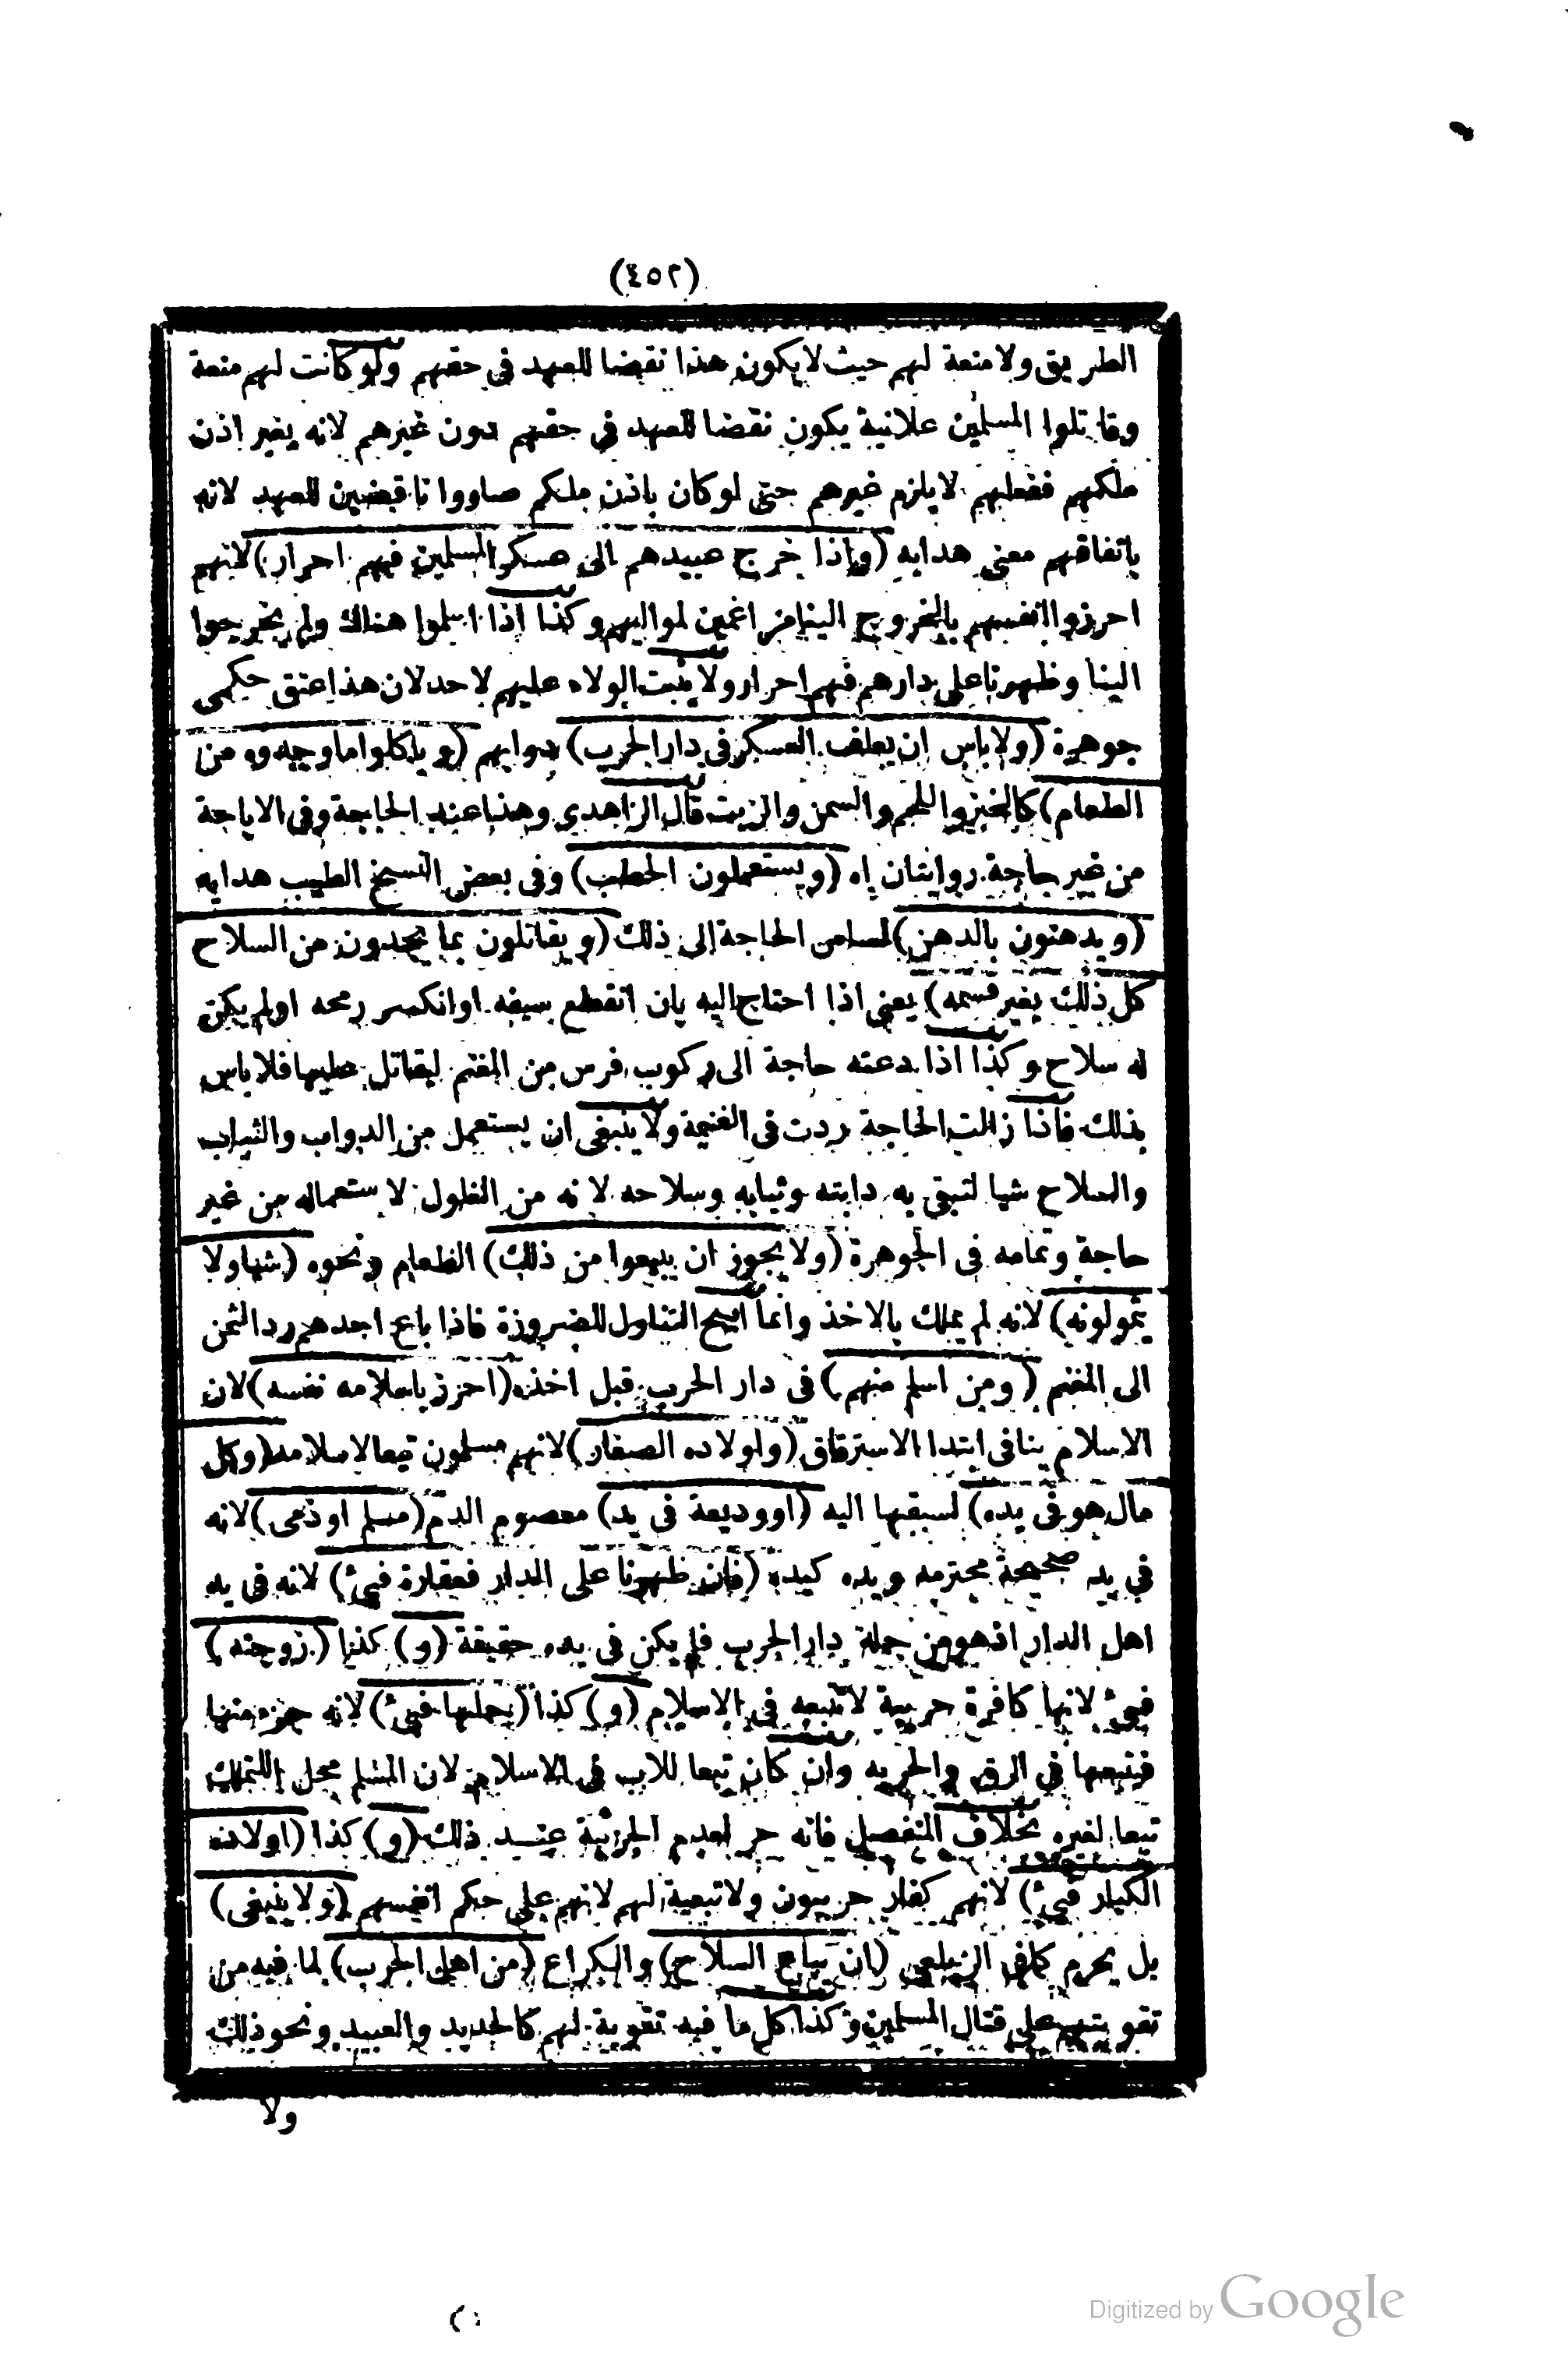 (٤٥٢)
الطريق ولا منعة لهم حيث لا يكون هذا نقضا للعهد فى حقهم ولو كانت لهم منعة
وقاتلوا المسلمين علانية يكون نقضا للعهد فى حقهم دون غيرهم لانه بغير اذن
ملكهم ففعلهم لا يلزم غيرهم حتى لو كان باذن ملكهم صاروا ناقضين للعهد لانه
باتفاقهم معنى هدايه (واذا خرج عبيدهم الى عسكر المسلمين فهم احرار) لانهم
احرزوا انفسهم بالخروج الينا مراغمين لمواليهم وكذا اذا اسلموا هناك ولم يخرجوا
الينا وظهرنا على دارهم فهم احرار ولا يثبت الولاء عليهم لاحد لان هذا عتق حكمى
جوهرة (ولا باس ان يعلف العسكر فى دار الحرب) دوابهم (وياكلوا ما وجدوه من
الطعام) كالخبز واللحم والسمن والزيت قال الزاهدى وهذا عند الحاجة وفى الاباحة
من غير حاجة روايتان اه (ويستعملون الحطب) وفى بعض النسخ الطيب هدايه
(ويدهنون بالدهن) لمساس الحاجة الى ذلك (ويقاتلون بما يجدون من السلاح
كل ذلك بغير قسمه) يعنى اذا احتاج اليه بان انقطع سيفه او انكسر رمحه او لم يكن
له سلاح وكذا اذا دعته حاجة الى ركوب فرس من المغنم ليقاتل عليها فلا باس
بذلك فاذا زالت الحاجة ردت فى الغنيمة ولا ينبغى ان يستعمل من الدواب والثياب
والسلاح شيا لتبقى به دابته وثيابه وسلاحه لانه من الغلول لاستعماله من غير
حاجة وتمامه فى الجوهرة (ولا يجوز ان يبيعوا من ذلك) الطعام ونحوه (شيا ولا
يتمولونه) لانه لم يملك بالاخذ وانما ابيح التناول للضرورة فاذا باع احدهم رد الثمن
الى المغنم (ومن اسلم منهم) فى دار الحرب قبل اخذه (احرز باسلامه نفسه) لان
الاسلام ينافى ابتدا الاسترقاق (واولاده الصغار) لانهم مسلمون تبعا لاسلامه (وكل
مال هو فى يده) لسبقها اليه (او وديعة فى يد) معصوم الدم (مسلم او ذمى) لانه
فى يد صحيحة محترمه ويده كيده (فان ظهرنا على الدار فعقارة فىئ) لانه فى يد
اهل الدار اذ هو من جملة دار الحرب فلم يكن فى يده حقيقة (و) كذا (زوجته)
فىئ لانها كافرة حربية لا تتبعه فى الاسلام (و) كذا (حملها فىئ) لانه جزء منها
فيتبعها فى الرق والحريه وان كان تبعا للاب فى الاسلام لان المسلم محل للتملك
تبعا لغيره بخلاف المنفصل فانه حر لعدم الجزئية عند ذلك (و) كذا (اولاده
الكبار فىئ) لانهم كفار حربيون ولا تبعية لهم لانهم على حكم انفسهم (ولا ينبغى)
بل يحرم كما فى الزيلعى (ان يباع السلاح) والكراع (من اهل الحرب) لما فيه من
تقويتهم على قتال المسلمين وكذا كل ما فيه تقوية لهم كالحديد والعبيد ونحو ذلك
ولا
Digitized by Google